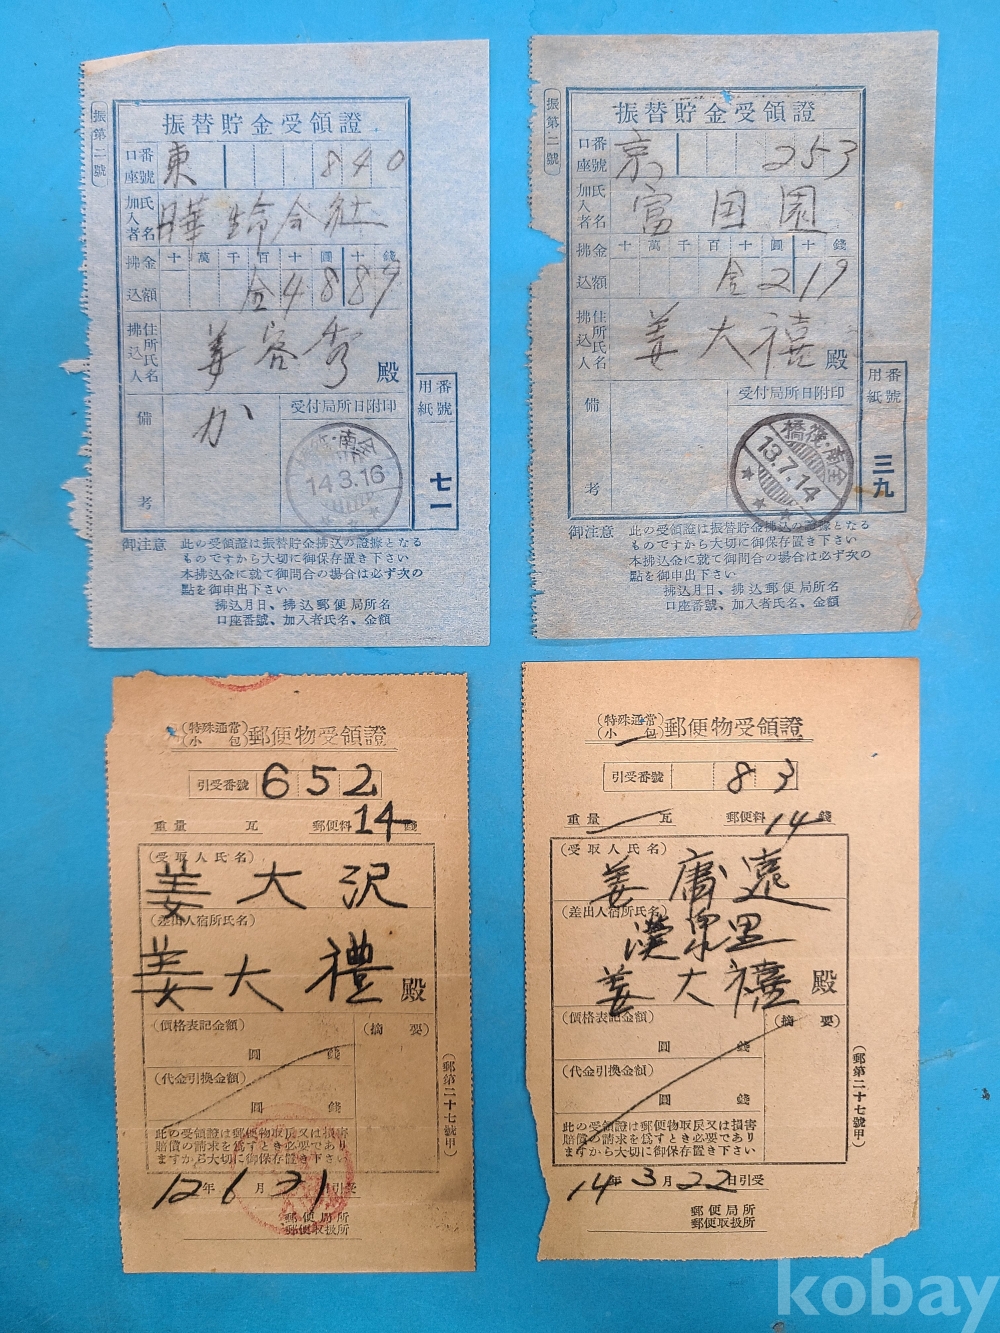 振第二號
振替貯金受領證
口座番號 東 840
加入者氏名 生命会社
拂込金額 十萬千百十圓十錢
金4889
拂込人住所氏名 姜容秀 殿
備考 か
受付局所日附印
全南·筏橋
14.3.16
用紙番號 七一
御注意 此の受領證は振替貯金拂込の證據となる
ものですから大切に御保存置き下さい
本拂込金に就て御問合の場合は必ず次の
點を御申出下さい
拂込月日、拂込郵便局所名
口座番號、加入者氏名、金額
振第二號
振替貯金受領證
口座番號 京 253
加入者氏名 富田園
拂込金額 十萬千百十圓十錢
金219
拂込人住所氏名 姜大禧 殿
備考
受付局所日附印
全南·筏橋
13.7.14
用紙番號 三九
御注意 此の受領證は振替貯金拂込の證據となる
ものですから大切に御保存置き下さい
本拂込金に就て御問合の場合は必ず次の
點を御申出下さい
拂込月日、拂込郵便局所名
口座番號、加入者氏名、金額
(特殊通常 小包) 郵便物受領證
引受番號 652
重量 瓦 郵便料 14 錢
(受取人氏名)
姜大沢
(差出人宿所氏名)
姜大禮 殿
(價格表記金額) (摘要)
圓 錢
(代金引換金額)
圓 錢
此の受領證は郵便物取戾又は損害
賠償の請求を爲すとき必要であり
ますから大切に御保存置き下さい
12年6月21日引受
郵便局所
郵便取扱所
(郵第二十七號甲)
(特殊通常 小包) 郵便物受領證
引受番號 83
重量 瓦 郵便料 14 錢
(受取人氏名)
姜庸遠
(差出人宿所氏名)
漢泉里
姜大禧 殿
(價格表記金額) (摘要)
圓 錢
(代金引換金額)
圓 錢
此の受領證は郵便物取戾又は損害
賠償の請求を爲すとき必要であり
ますから大切に御保存置き下さい
14年3月22日引受
郵便局所
郵便取扱所
(郵第二十七號甲)
kobay